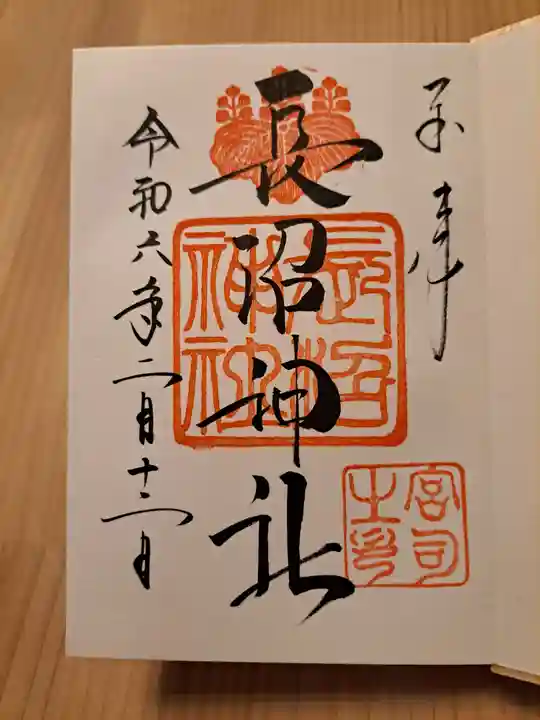 奉拝
長沼神社
長沼神社
宮司之印
令和六年二月十二日